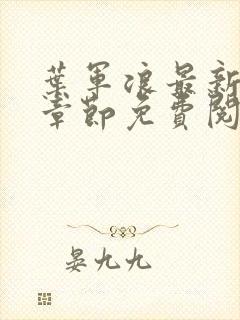 葉軍浪最新
章節免費閱
晏九九